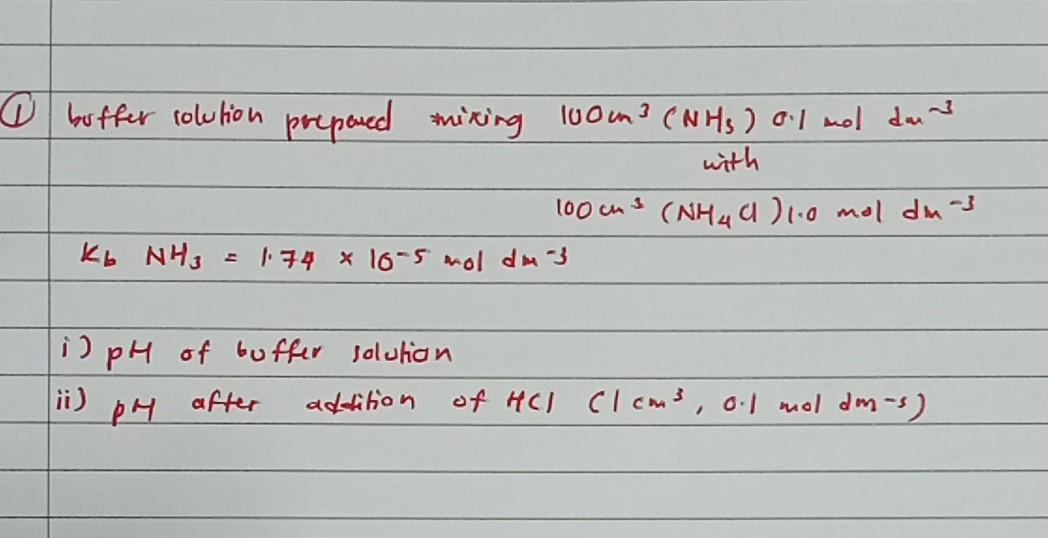 ① buffer solution prepared mixing 100cm³ (NH₃) 0.1 mol dm⁻³
with
100 cm³ (NH₄Cl) 1.0 mol dm⁻³
Kb NH₃ = 1.74 × 10⁻⁵ mol dm⁻³
i) pH of buffer solution
ii) pH after addition of HCl (1 cm³, 0.1 mol dm⁻³)